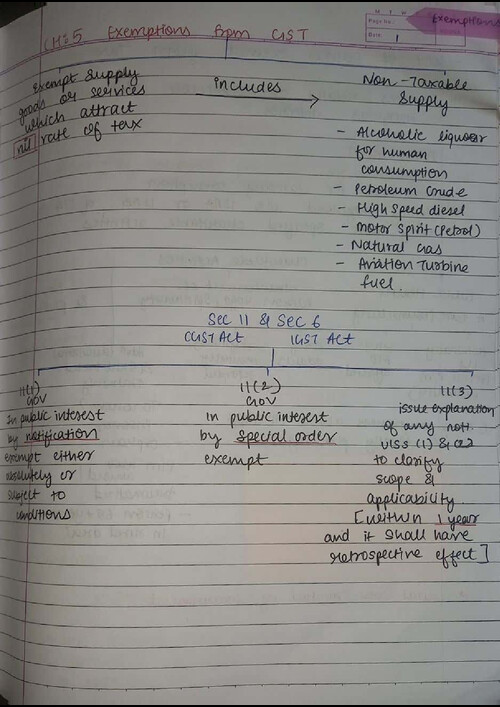 CH:5 Exemptions from GST
Page No.:
Date: 1
Exemptions
Exempt Supply
goods or services
which attract
nil rate of tax
includes
Non-Taxable
Supply
- Alcoholic liquour
for human
consumption
- Petroleum Crude
- High Speed diesel
- Motor Spirit (Petrol)
- Natural Gas
- Aviation Turbine
fuel.
Sec 11 & Sec 6
CGST Act IGST Act
11(1)
GOV
In public interest
by notification
exempt either
absolutely or
subject to
conditions
11(2)
GOV
in public interest
by Special order
exempt
11(3)
issue explanation
of any not.
u/ss (1) & or2
to clarify
scope &
applicability.
[within 1 year
and it shall have
retrospective effect]